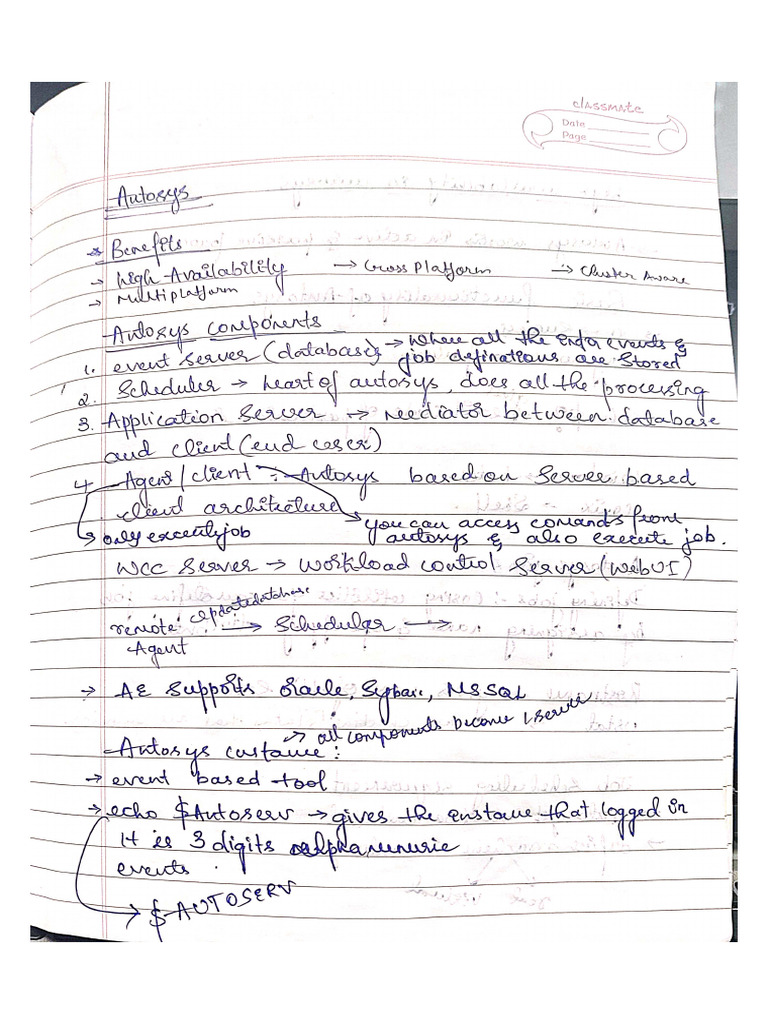 classmate
Date
Page
Autosys
* Benefits
→ High Availability → Cross Platform → Cluster Aware
→ Multiplatform
Autosys components
1. event server (database) → where all the events &
job definations are stored
2. Scheduler → heart of autosys, does all the processing
3. Application Server → Mediator between database
and client (end user)
4. Agent/client :- Autosys based on Server based
client architecture
→ only execute job → you can access comands from
autosys & also execute job.
WCC Server → Workload control Server (WebUI)
update database
remote → Schedular →
Agent
→ AE supports Oracle, Sybase, MSSQL
→ all components become 1 server
Autosys enstance :
→ event based tool
→ echo $Autoserv → gives the enstance that logged in
It is 3 digits alphanumeric
events.
→ $AUTOSERV